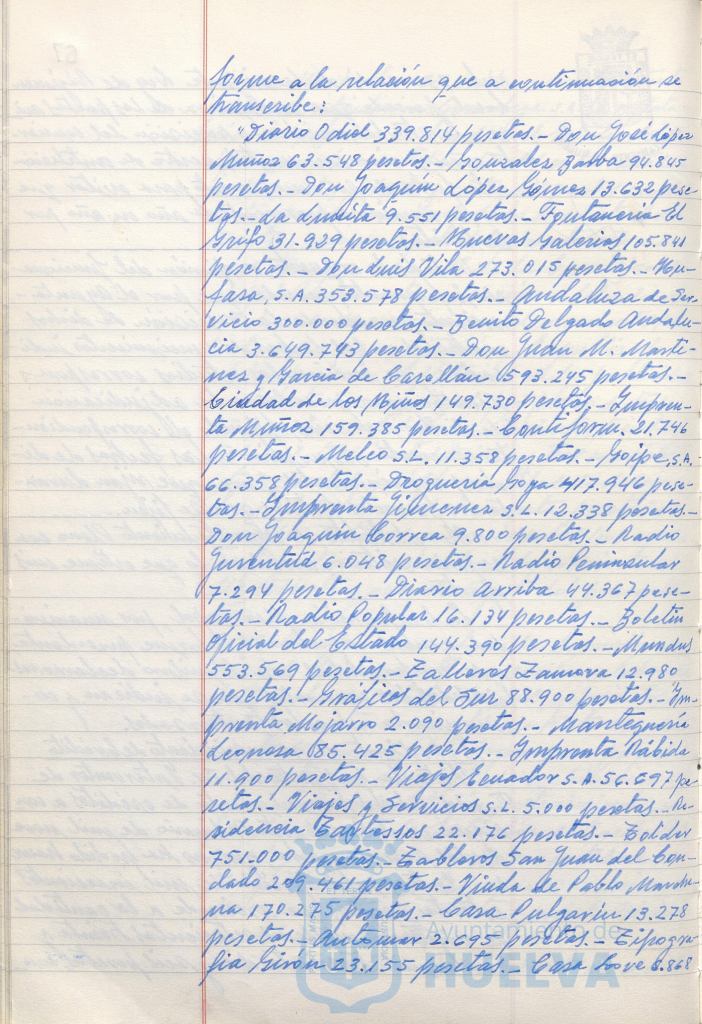 forme a la relación que a continuación se
transcribe:
"Diario Odiel 339.814 pesetas.- Don José López
Muñoz 63.548 pesetas.- González Barba 94.845
pesetas.- Don Joaquín López Gómez 13.632 pese-
tas.- La Lucita 9.551 pesetas.- Fontanería El
Grifo 31.929 pesetas.- Nuevas Galerías 105.841
pesetas.- Don Luis Vila 273.015 pesetas.-
fasa, S.A. 353.578 pesetas.- Andaluza de Ser-
vicio 300.000 pesetas.- Benito Delgado Andalu-
cia 3.649.743 pesetas.- Don Juan M. Marti-
nez y García de Casellán 593.245 pesetas.-
Ciudad de los Niños 149.730 pesetas.- Impren-
ta Muñoz 159.385 pesetas.- Contiform. 21.746
pesetas.- Melco S.L. 11.358 pesetas.- Goipe, S.A.-
66.358 pesetas.- Droguería Goya 417.946 pese-
tas.- Imprenta Jimenez S.L. 12.338 pesetas.-
Don Joaquín Correa 9.800 pesetas.- Radio
Juventud 6.048 pesetas.- Radio Peninsular
7.294 pesetas.- Diario Arriba 44.367 pese-
tas.- Radio Popular 16.134 pesetas.- Boletín
Oficial del Estado 144.390 pesetas.- Mundus
553.569 pesetas.- Talleres Zamora 12.980
pesetas.- Gráficas del Sur 88.900 pesetas.- Im-
prenta Mojarro 2.090 pesetas.- Mantequería
Leonesa 85.425 pesetas.- Imprenta Rábida
11.900 pesetas.- Viajes Ecuador S.A. 56.697 pe-
setas.- Viajes y Servicios S.L. 5.000 pesetas.- Re-
sidencia Tartessos 22.176 pesetas.- Tolder
751.000 pesetas.- Tableros San Juan del Con-
dado 209.461 pesetas.- Viuda de Pablo Marche-
na 170.275 pesetas.- Casa Pulgarín 13.278
pesetas.- Antomar 2.695 pesetas.- Tipogra-
fía Girón 23.155 pesetas.- Casa Love 8.868
Ayuntamiento de
HUELVA